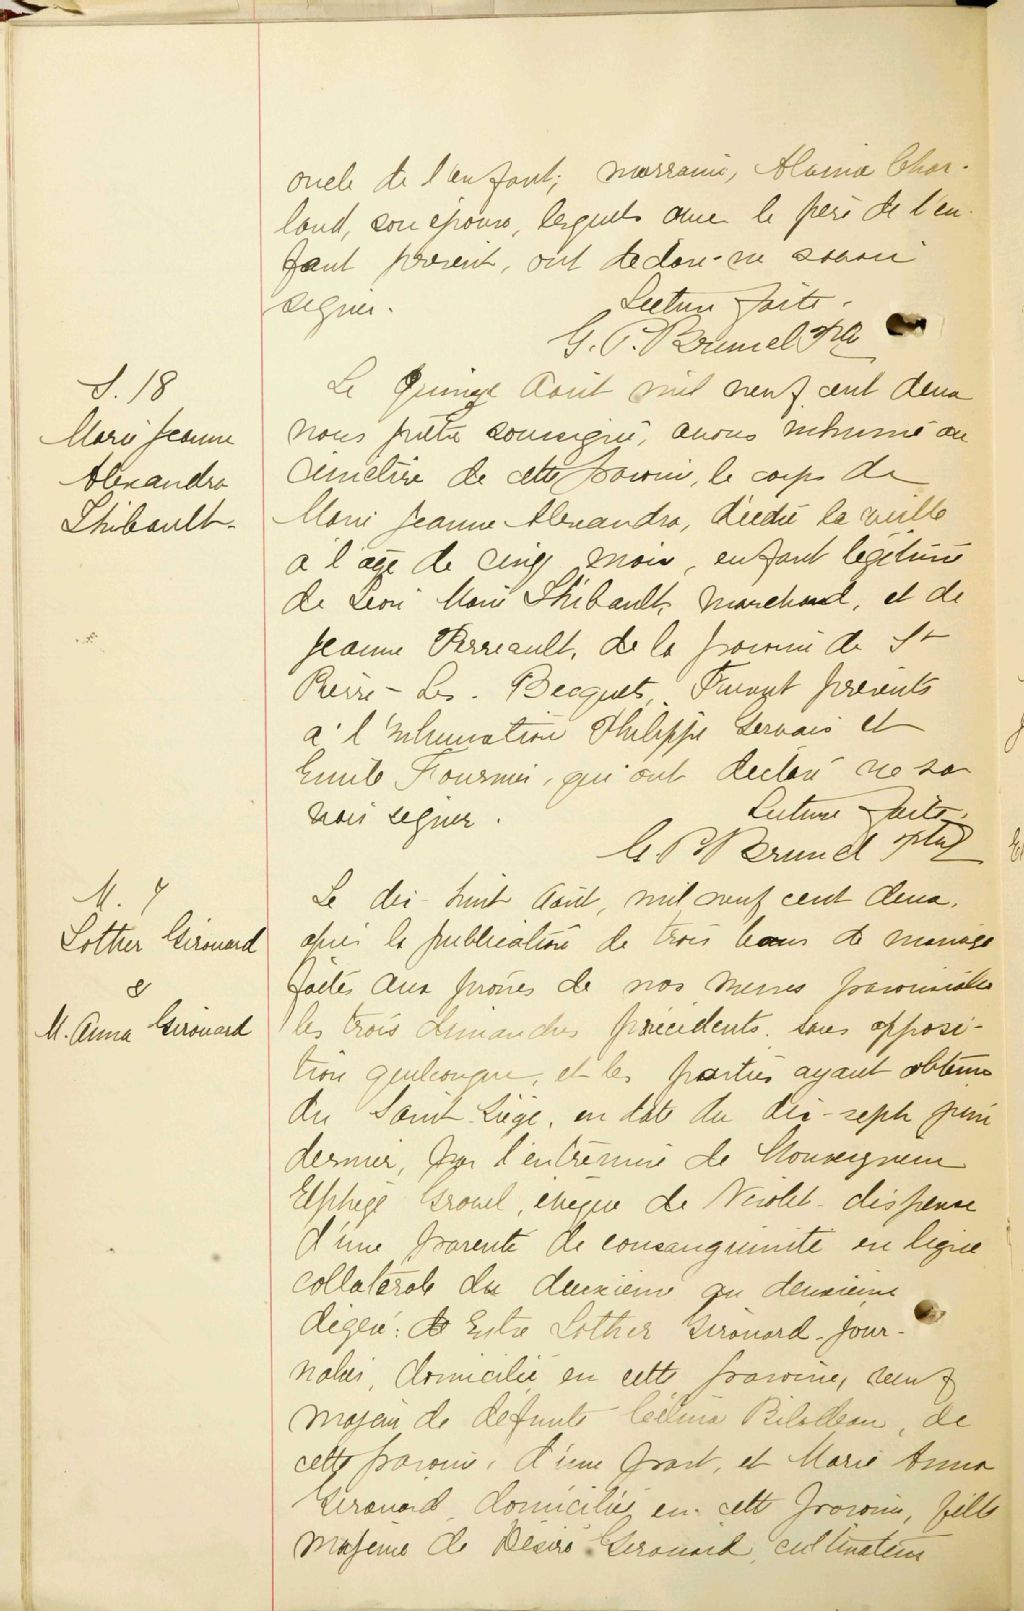 oncle de l'enfant; marraine, Alaina Char-
land, son épouse, lesquels avec le père de l'en-
fant présent, ont déclaré ne savoir
signer. Lecture faite.
G. P. Brunel ptre
S. 18
Marie Jeanne
Alexandra
Thibault.
Le quinze Août mil neuf cent deux
nous prêtre soussigné, avons inhumé au
cimetière de cette paroisse, le corps de
Marie Jeanne Alexandra, décédée la veille
à l'âge de cinq mois, enfant légitime
de Léon Marie Thibault, marchand, et de
Jeanne Perreault, de la paroisse de St
Pierre-Les-Becquets. Furent présents
à l'inhumation Philippe Gervais et
Emile Fournier, qui ont déclaré ne sa
voir signer. Lecture faite.
G P Brunel ptre
M. 7
Lother Girouard
&
M. Anna Girouard
Le dix-huit Août, mil neuf cent deux,
après la publication de trois bans de mariage
faites aux prônes de nos messes paroissiales
les trois dimanches précédents, sans opposi-
tion quelconque, et les parties ayant obtenu
du Saint Siège, en date du dix-sept juin
dernier, par l'entremise de Monseigneur
Elphège Gravel, évêque de Nicolet dispense
d'une parenté de consanguinité en ligne
collatérale du deuxième au deuxième
degré: Entre Lother Girouard, jour-
nalier, domicilié en cette paroisse, veuf
majeur de défunte Célina Bilodeau, de
cette paroisse, d'une part, et Marie Anna
Girouard domiciliée en cette paroisse, fille
majeure de Désiré Girouard, cultivateur